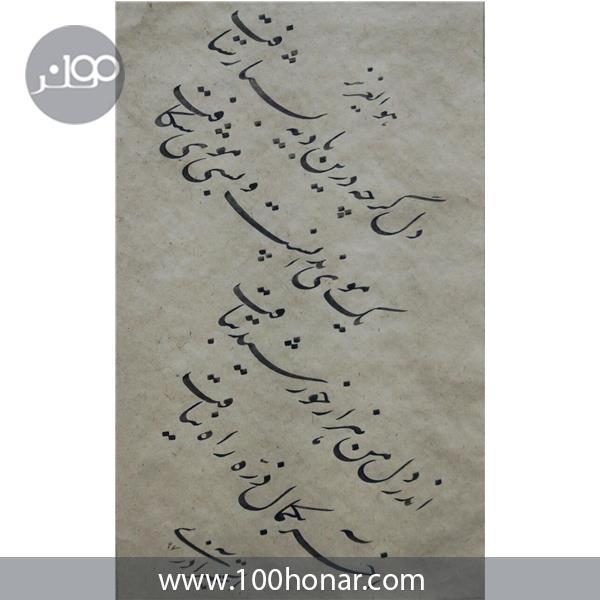 صدهنر
هوالعزیز
دل گرچه درین بادیه بسیار شتافت
یک موی ندانست و بسی موی شکافت
اندر دل من هزار خورشید بتافت
آخر به کمال ذره‌ای راه نیافت
www.100honar.com